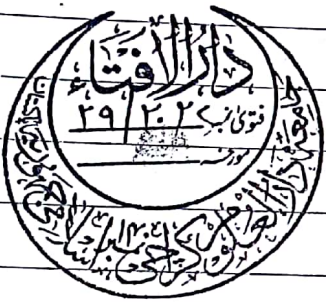 دارالافتاء
فتویٰ نمبر ۲۹/۲۰۲
مورخہ
جامعہ دارالعلوم کراچی نمبر